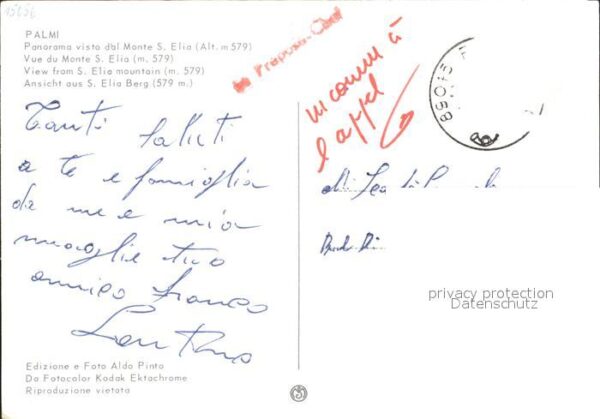 15656
PALMI
Panorama visto dal Monte S. Elia (Alt. m 579)
Vue du Monte S. Elia (m. 579)
View from S. Elia mountain (m. 579)
Ansicht aus S. Elia Berg (579 m.)
Le Préposé-Chef
inconnu à
l'appel
Tanti saluti
a te e famiglia
da me e mia
moglie tuo
amico franco
privacy protection
Datenschutz
Edizione e Foto Aldo Pinto
Da Fotocolor Kodak Ektachrome
Riproduzione vietata